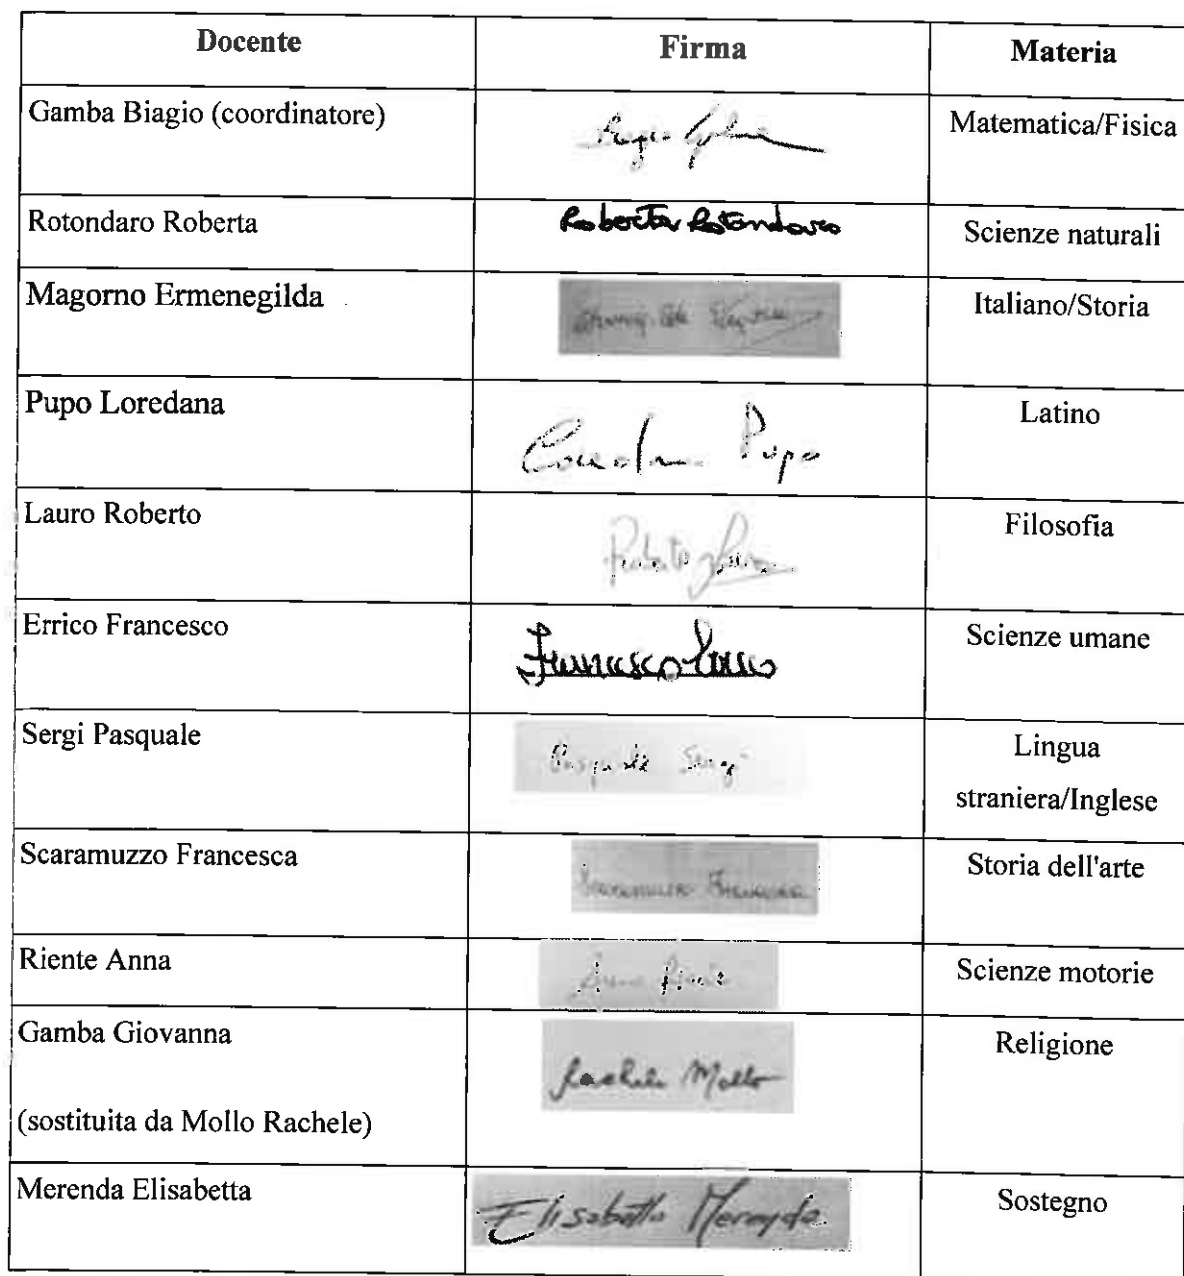 Docente Firma Materia
Gamba Biagio (coordinatore) Matematica/Fisica
Rotondaro Roberta Roberta Rotondaro Scienze naturali
Magorno Ermenegilda Italiano/Storia
Pupo Loredana Loredana Pupo Latino
Lauro Roberto Roberto Lauro Filosofia
Errico Francesco Francesco Errico Scienze umane
Sergi Pasquale Pasquale Sergi Lingua
straniera/Inglese
Scaramuzzo Francesca Scaramuzzo Francesca Storia dell'arte
Riente Anna Anna Riente Scienze motorie
Gamba Giovanna Religione
Rachele Mollo
(sostituita da Mollo Rachele)
Merenda Elisabetta Elisabetta Merenda Sostegno